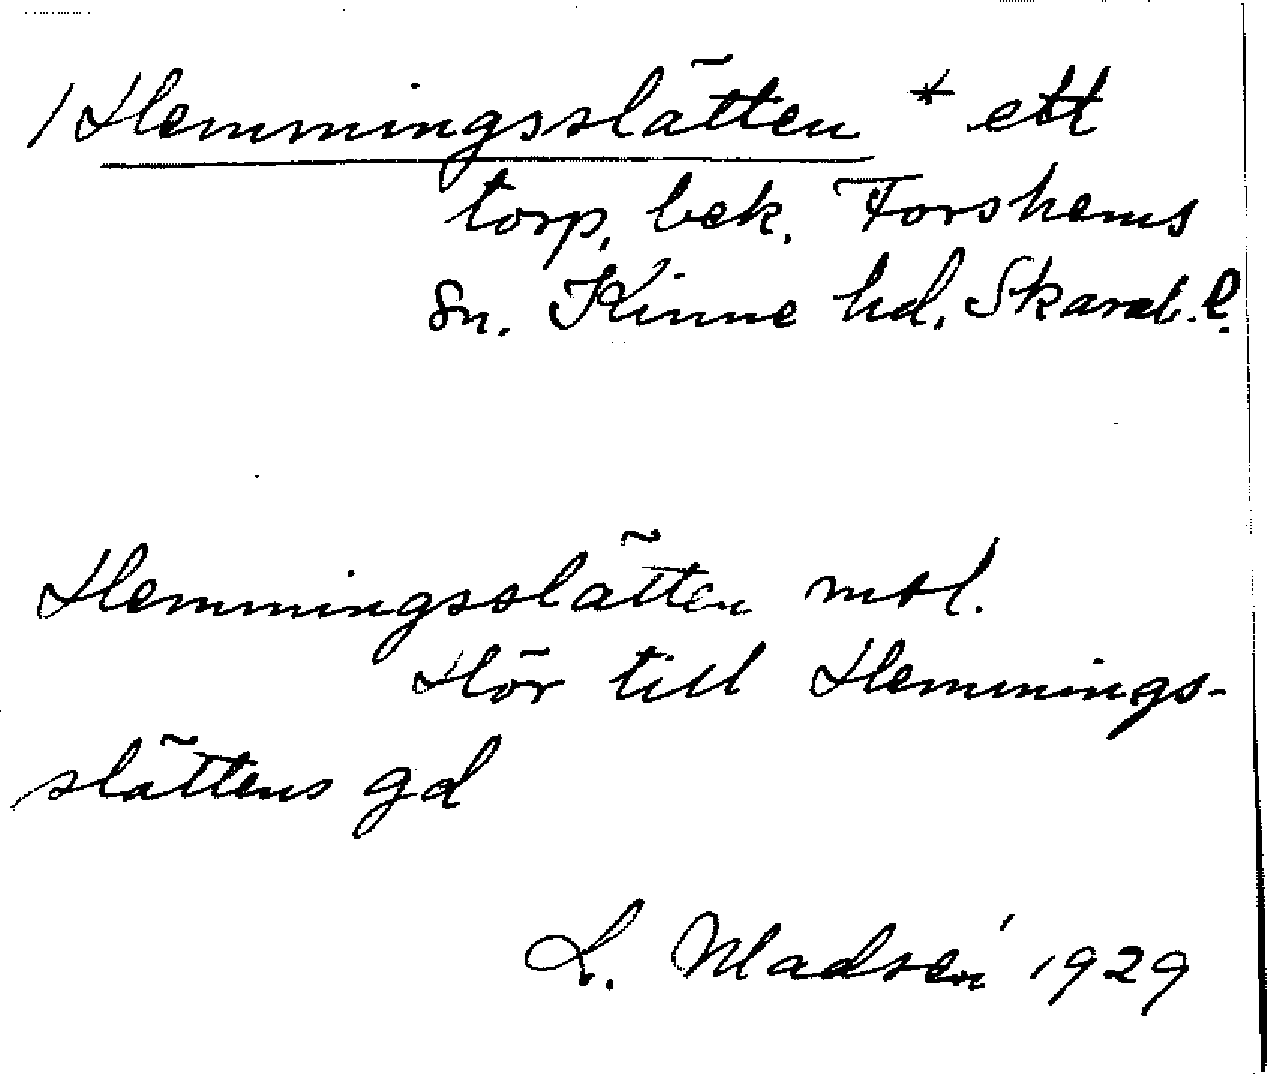 /Hemmingsslätten * ett
torp, bek. Forshems
sn. Kinne hd, Skarab. l.
Hemmingsslätten mtl.
Hör till Hemmings-
slättens gd
L. Madsén 1929